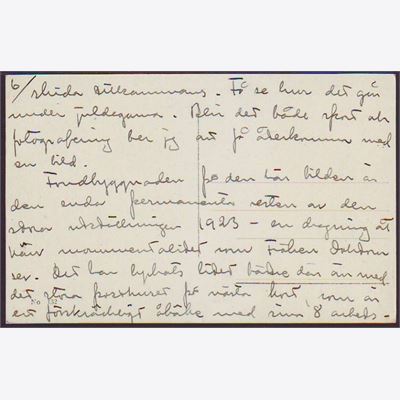 6/ skida tillsammans. Få se hur det går
under juldagarna. Blir det både sport och
fotografering ber jag att få återkomma med
en bild.
Fondbyggnaden på den här bilden är
den enda permanenta resten av den
stora utställningen 1923 – en dragning åt
monumentalitet som Fröken Doktorn
ser. Det har lyckats litet bättre där än med
det stora posthuset på nästa kort, som är
ett förskräckligt åbäke med sina 8 arbets-
No